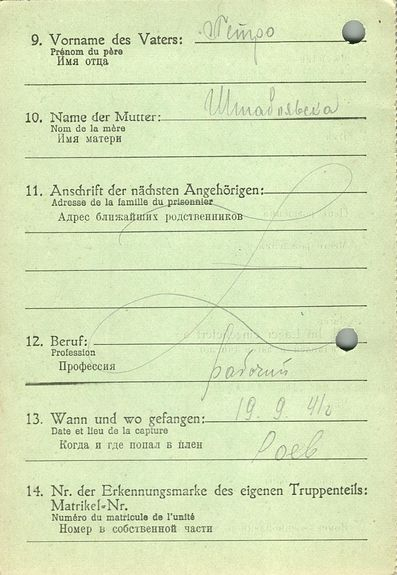 9. Vorname des Vaters: Петро
Prénom du père
Имя отца
10. Name der Mutter:
Nom de la mère
Имя матери
11. Anschrift der nächsten Angehörigen:
Adresse de la famille du prisonnier
Адрес ближайших родственников
12. Beruf: рабочий
Profession
Профессия
13. Wann und wo gefangen: 19. 9. 41
Date et lieu de la capture
Когда и где попал в плен
14. Nr. der Erkennungsmarke des eigenen Truppenteils:
Matrikel-Nr.
Numéro du matricule de l'unité
Номер в собственной части